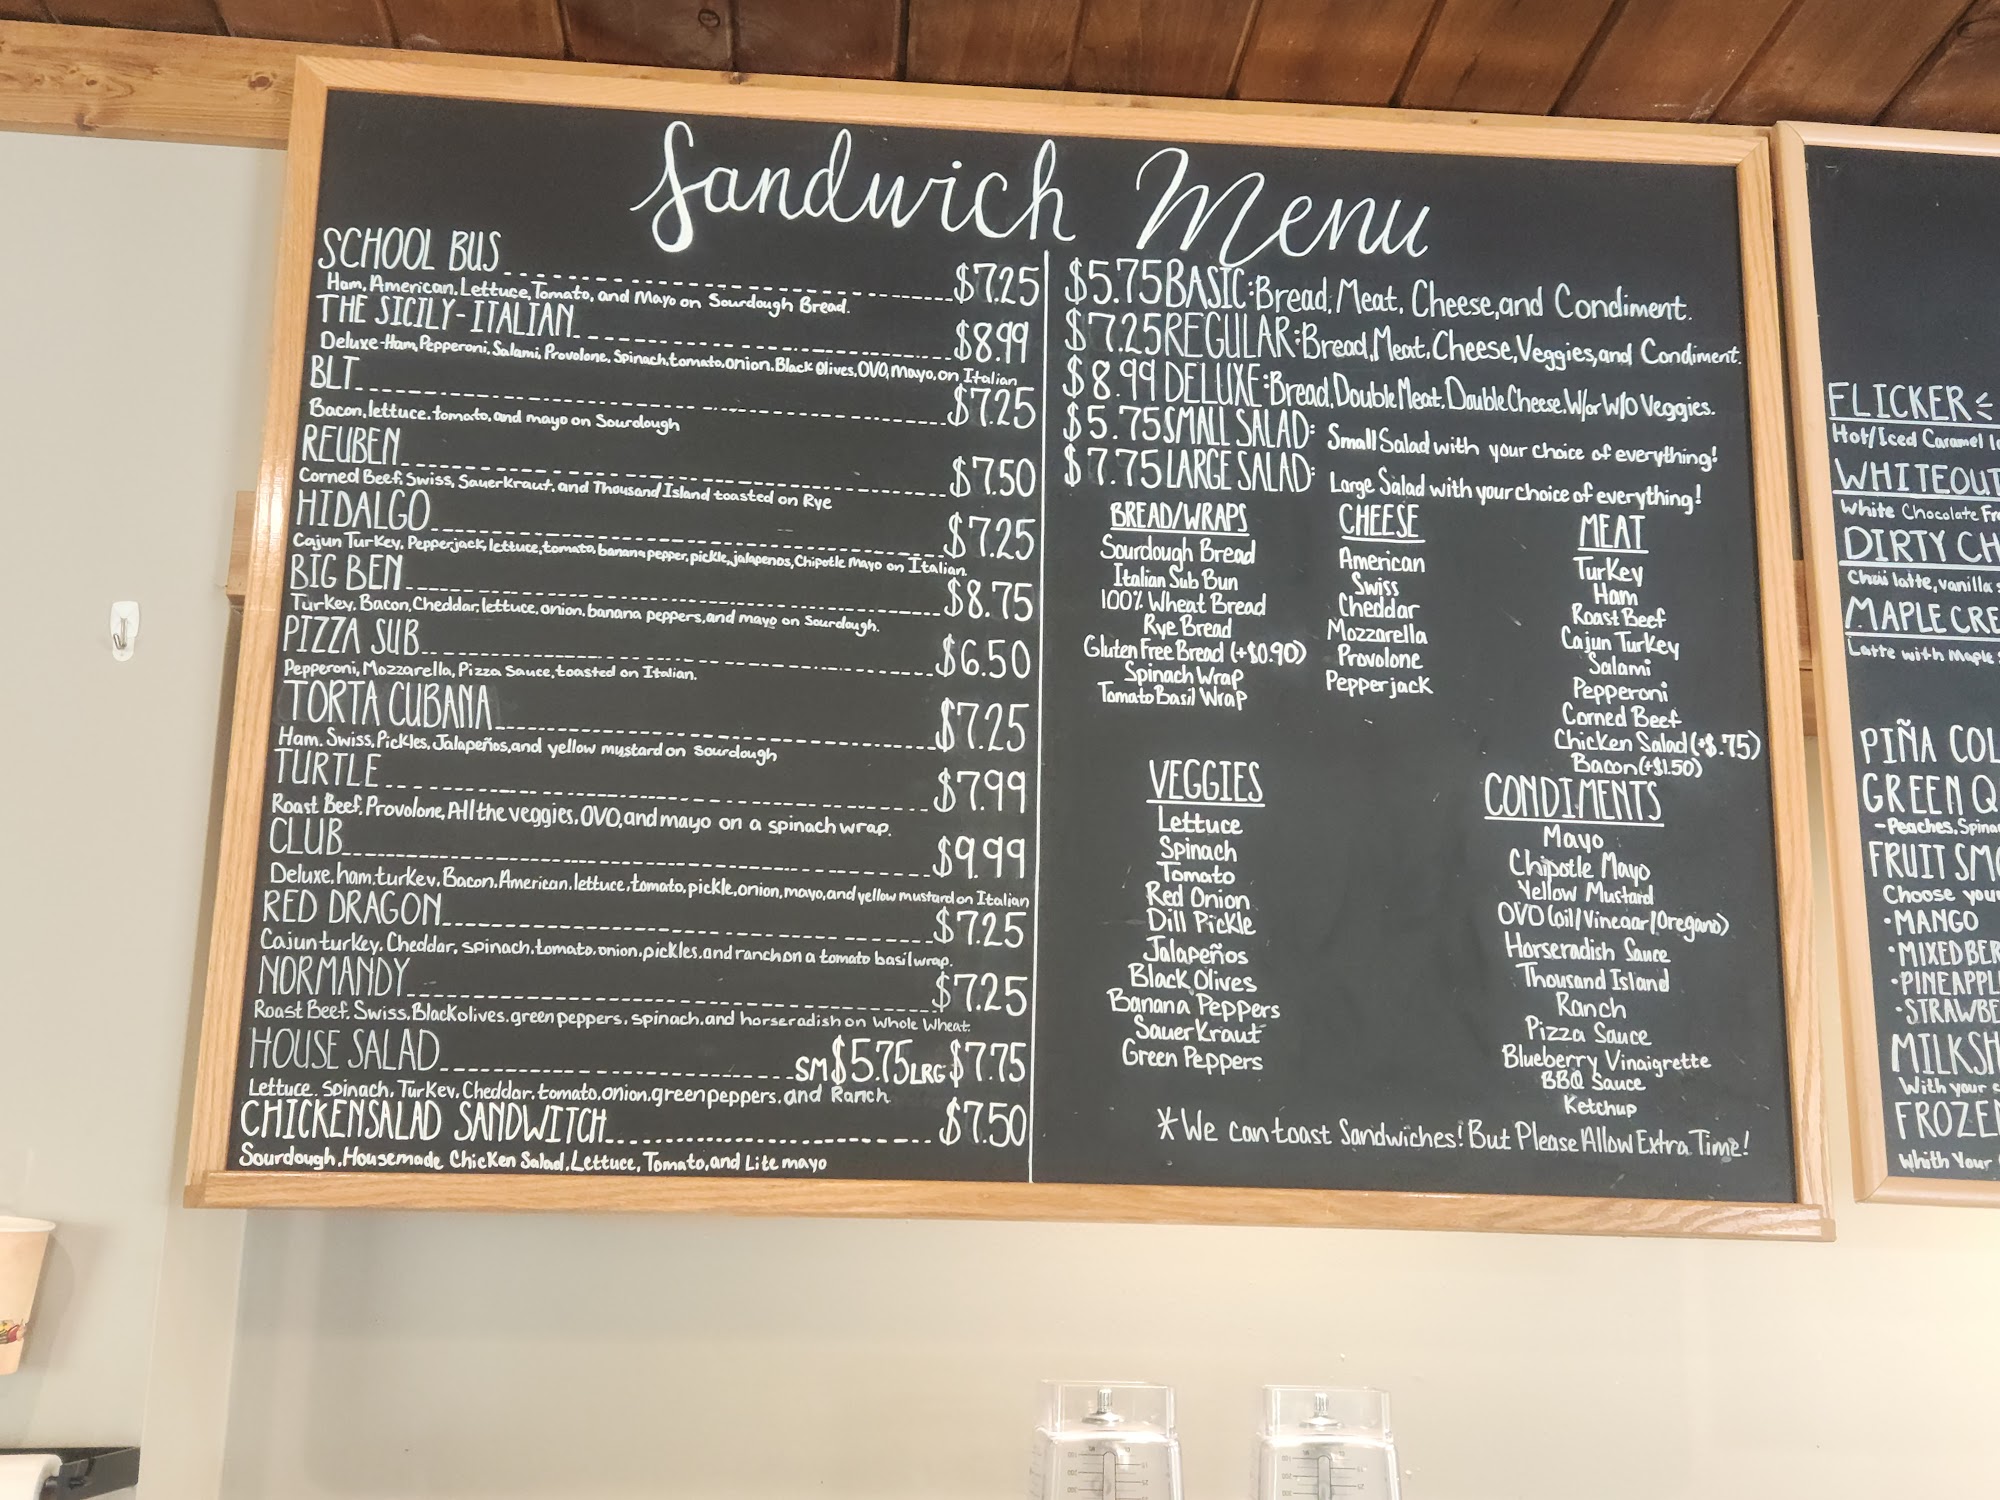 Sandwich Menu
SCHOOL BUS $7.25
Ham, American, Lettuce, Tomato, and Mayo on Sourdough Bread.
THE SICILY-ITALIAN $8.99
Deluxe-Ham, Pepperoni, Salami, Provolone, Spinach, tomato, onion, Black Olives, OVO, Mayo, on Italian
BLT $7.25
Bacon, lettuce, tomato, and mayo on Sourdough
REUBEN $7.50
Corned Beef, Swiss, Sauerkraut, and Thousand Island toasted on Rye
HIDALGO $7.25
Cajun Turkey, Pepperjack, lettuce, tomato, banana pepper, pickle, jalapenos, Chipotle Mayo on Italian.
BIG BEN $8.75
Turkey, Bacon, Cheddar, lettuce, onion, banana peppers, and mayo on Sourdough.
PIZZA SUB $6.50
Pepperoni, Mozzarella, Pizza Sauce, toasted on Italian.
TORTA CUBANA $7.25
Ham, Swiss, Pickles, Jalapeños, and yellow mustard on sourdough
TURTLE $7.99
Roast Beef, Provolone, All the veggies, OVO, and mayo on a spinach wrap.
CLUB $9.99
Deluxe, ham, turkey, Bacon, American, lettuce, tomato, pickle, onion, mayo, and yellow mustard on Italian
RED DRAGON $7.25
Cajun turkey, Cheddar, spinach, tomato, onion, pickles, and ranch on a tomato basil wrap.
NORMANDY $7.25
Roast Beef, Swiss, Black olives, green peppers, spinach, and horseradish on Whole Wheat.
HOUSE SALAD SM $5.75 LRG $7.75
Lettuce, Spinach, Turkey, Cheddar, tomato, onion, green peppers, and Ranch
CHICKEN SALAD SANDWITCH $7.50
Sourdough, Housemade Chicken Salad, Lettuce, Tomato, and Lite mayo
$5.75 BASIC: Bread, Meat, Cheese, and Condiment.
$7.25 REGULAR: Bread, Meat, Cheese, Veggies, and Condiment.
$8.99 DELUXE: Bread, Double Meat, Double Cheese, W/or W/O Veggies.
$5.75 SMALL SALAD: Small Salad with your choice of everything!
$7.75 LARGE SALAD: Large Salad with your choice of everything!
BREAD/WRAPS
Sourdough Bread
Italian Sub Bun
100% Wheat Bread
Rye Bread
Gluten Free Bread (+$0.90)
Spinach Wrap
Tomato Basil Wrap
CHEESE
American
Swiss
Cheddar
Mozzarella
Provolone
Pepperjack
MEAT
Turkey
Ham
Roast Beef
Cajun Turkey
Salami
Pepperoni
Corned Beef
Chicken Salad (+$.75)
Bacon (+$1.50)
VEGGIES
Lettuce
Spinach
Tomato
Red Onion
Dill Pickle
Jalapeños
Black Olives
Banana Peppers
SauerKraut
Green Peppers
CONDIMENTS
Mayo
Chipotle Mayo
Yellow Mustard
OVO (oil/Vinegar/Oregano)
Horseradish Sauce
Thousand Island
Ranch
Pizza Sauce
Blueberry Vinaigrette
BBQ Sauce
Ketchup
*We can toast Sandwiches! But Please Allow Extra Time!
FLICKER
Hot/Iced Caramel
WHITEOUT
White Chocolate
DIRTY
Chai latte, vanilla
MAPLE
Latte with Maple
PIÑA
GREEN
-Peaches,
FRUIT
Choose
•MANGO
•MIXED
With your
FROZEN
Whith Your